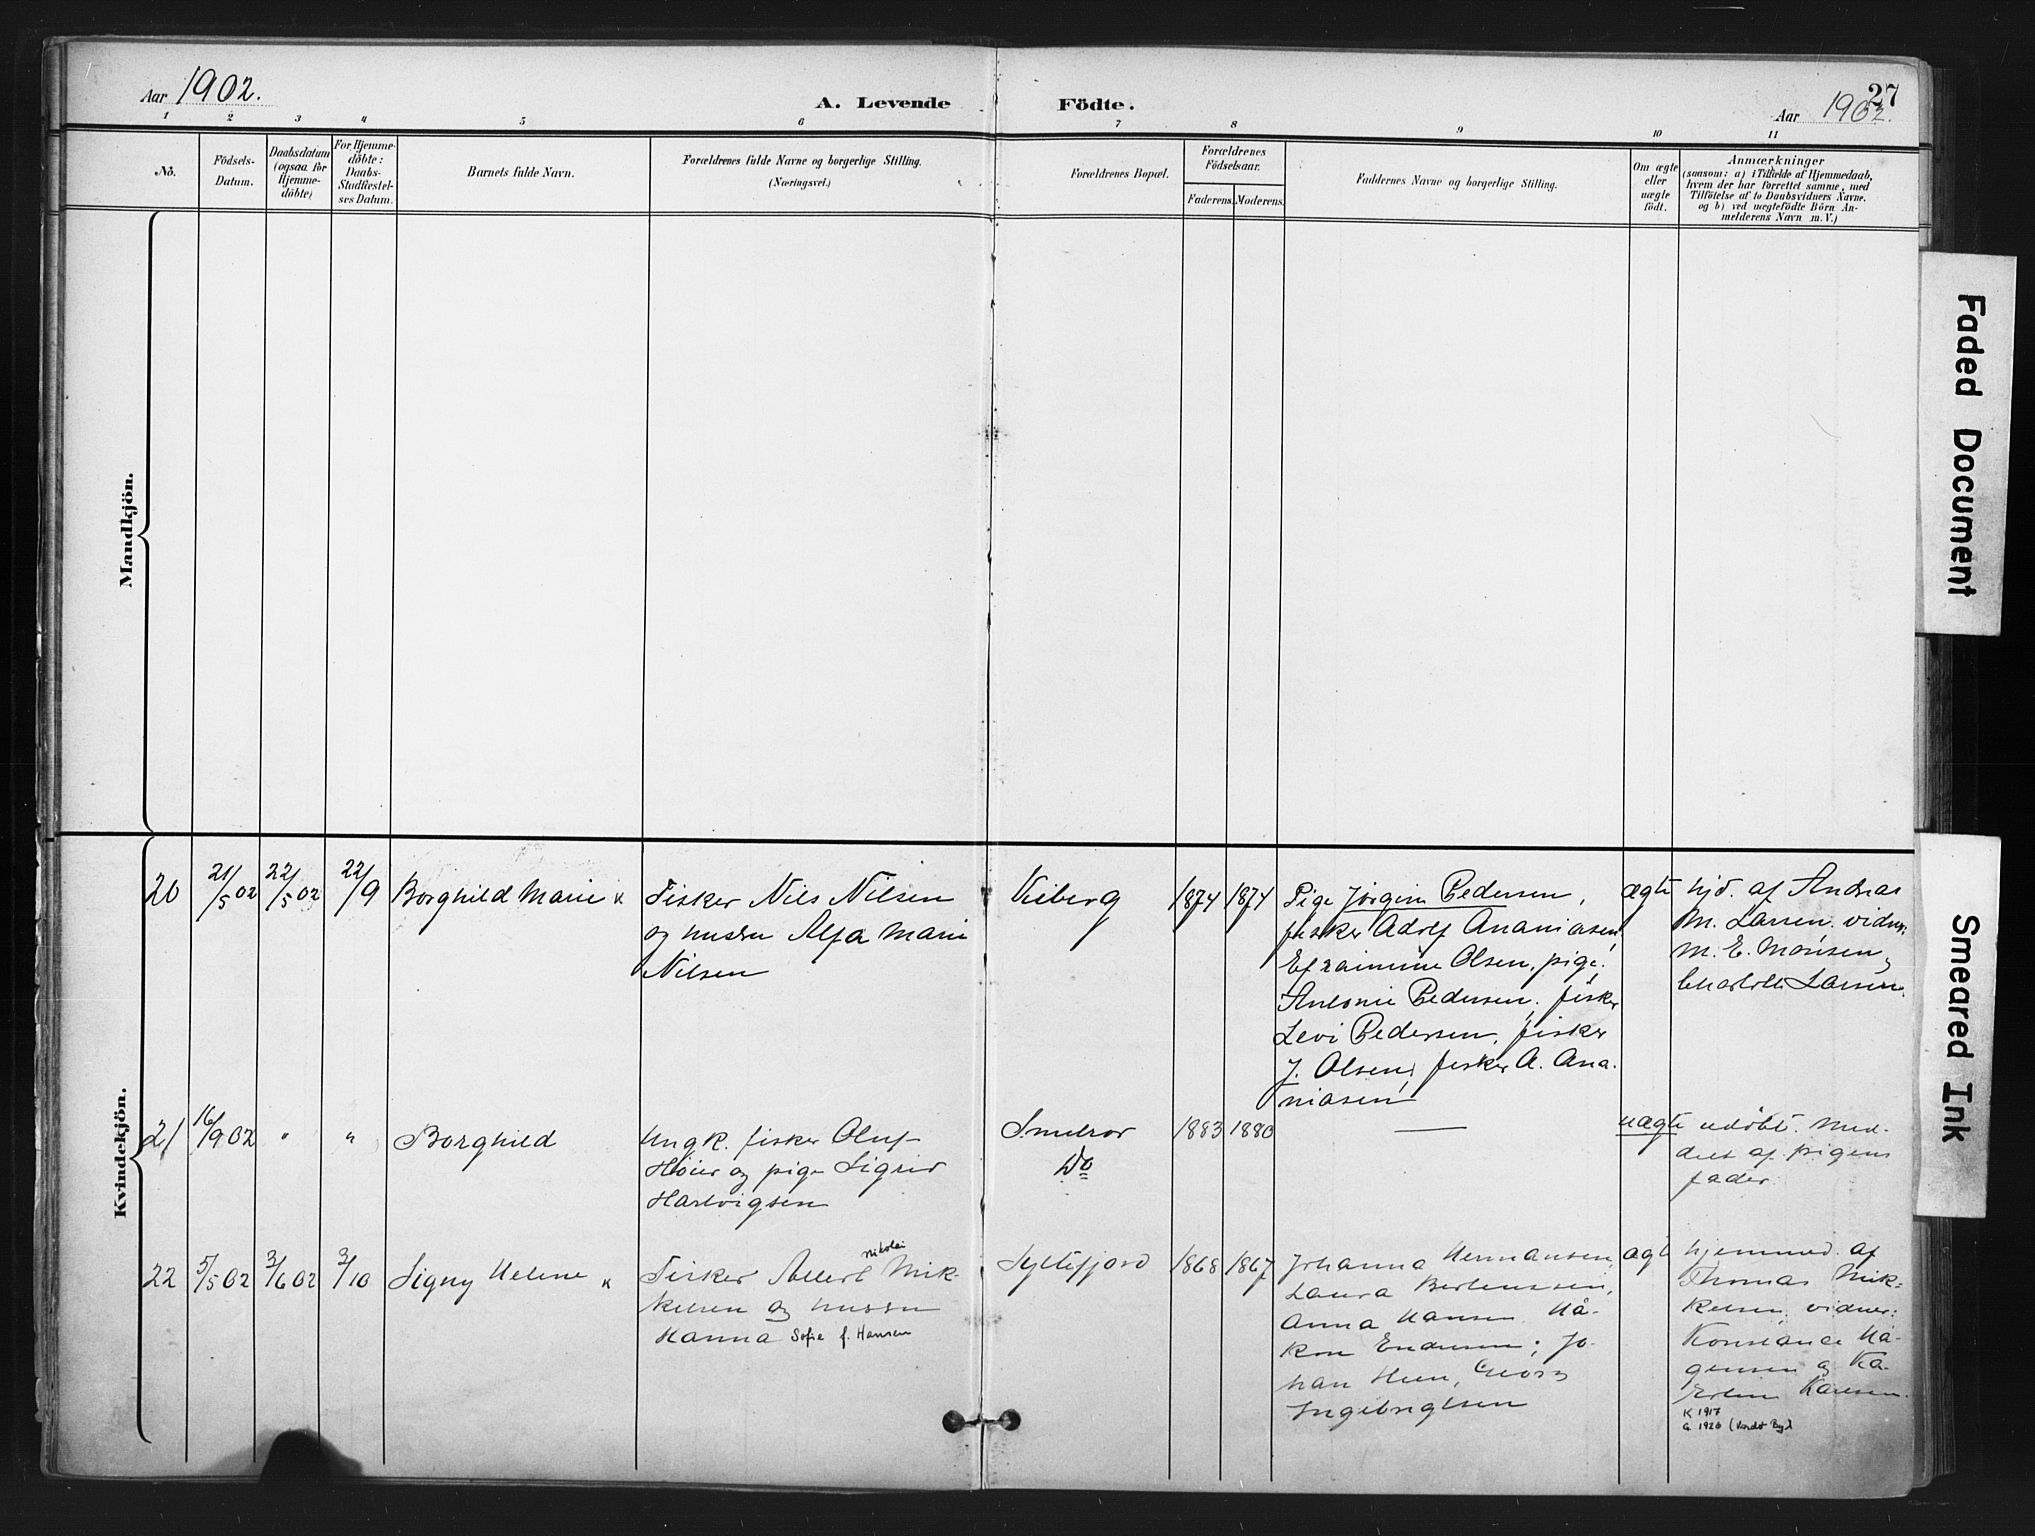 Aar 1902.
A. Levende Födte.
Aar 1902.
27
1 2 3 4 5 6 7 8 9 10 11
No.
Födsels-
Datum.
Daabsdatum
(ogsaa for
Hjemme-
döbte)
For Hjemme-
döbte:
Daabs-
Stadfæstel-
ses Datum.
Barnets fulde Navn.
Forældrenes fulde Navne og borgerlige Stilling.
(Næringsvei.)
Forældrenes Bopæl.
Forældrenes
Födselsaar.
Faderens. Moderens.
Faddernes Navne og borgerlige Stilling.
Om ægte
eller
uægte
födt.
Anmærkninger
(saasom: a) i Tilfælde af Hjemmedaab,
hvem der har forrettet samme, med
Tilföielse af to Daabsvidners Navne.
og b) ved uægtefödte Börn An-
melderens Navn m. V.)
Mandkjön.
Kvindekjön.
20
21/5 02
22/5 02
22/9
Borghild Marie
Fisker Nils Nilsen
og hustru Alfa Marie
Nilsen
Kiberg
1874
1874
Pige Jørgine Pedersen,
fisker Adolf Ananiasen,
Efraimine Olsen, pige
Antonie Pedersen, fisker
Levi Pedersen, fisker
J. Olsen, fisker A. Ana-
niasen
ægte
hjd. af Andreas
M. Larsen. vidner:
M. E. Monsen,
Charlotte Larsen.
21
16/9 02
"
"
Borghild
Ungk. fisker Oluf
Høier og pige Sigrid
Hartvigsen
Smelror
Do
1883
1880
—
uægte
udøbt. Med-
delt af pigens
fader.
22
5/5 02
3/6 02
3/10
Signy Helene
Fisker Albert Nikolai Mik-
kelsen og hustru
Hanna Sofie f. Hansen
Syltefjord
1868
1867
Johanna Hermansen,
Laura Bertenssen,
Anna Hansen Hå-
kon Endresen; Jo-
han Georg
Ingebrigtsen
ægte
hjemmed. af
Thomas Mik-
kelsen, vidner:
Konstance Hå-
gensen og
Karlsen.
K 1917
G. 1926 (Vardø By)
Faded Document
Smeared Ink